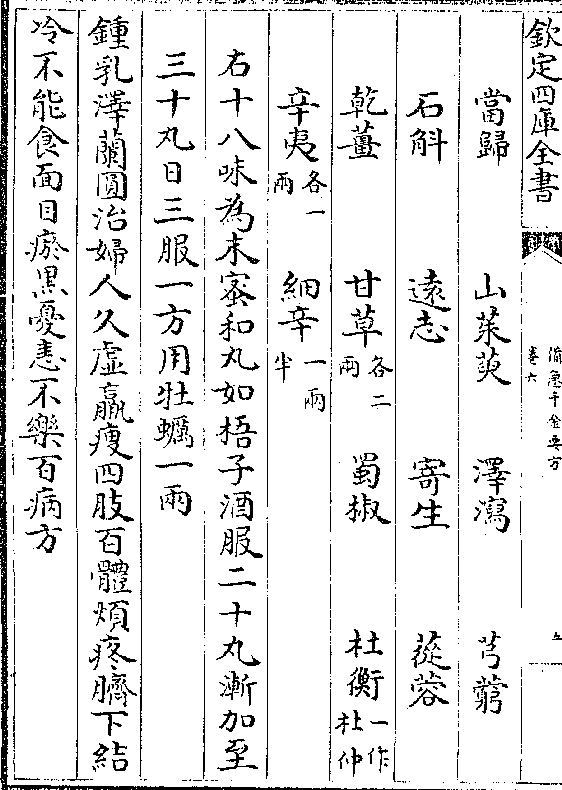 欽定四庫全書
備急千金要方
卷六
五
當歸 山茱萸 澤瀉 芎藭
石斛 遠志 寄生 蓯蓉
乾薑 甘草各二兩 蜀椒 杜衡一作杜仲
辛夷各一兩 細辛一兩半
右十八味為末蜜和丸如梧子酒服二十丸漸加至
三十丸日三服一方用牡蠣一兩
鍾乳澤蘭圓治婦人久虛羸瘦四肢百體煩疼臍下結
冷不能食面目瘀黑憂恚不樂百病方